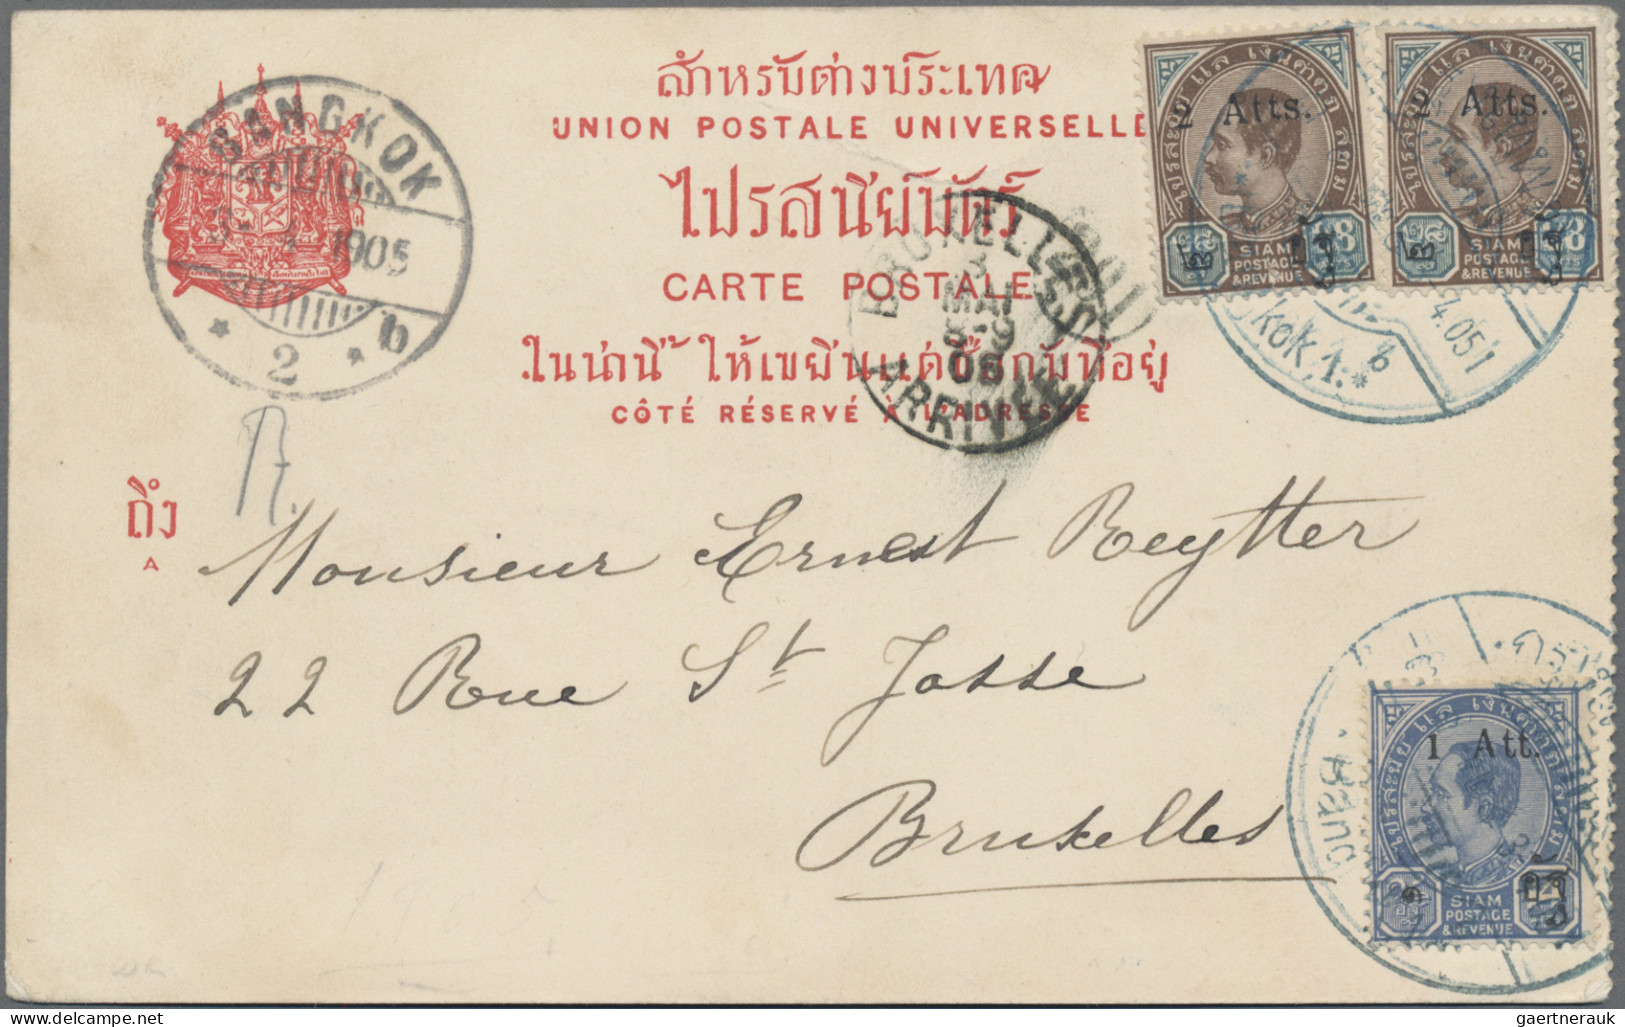 สำหรับต่างประเทศ
UNION POSTALE UNIVERSELLE
ไปรสนีย์บัตร์
CARTE POSTALE
ในน่านี้ ให้เขียนแต่ชื่อกับที่อยู่
CÔTÉ RÉSERVÉ À L'ADRESSE
BANGKOK
1905
2 b
BRUXELLES
3
MAI
8-9
05
ARRIVÉE
2 Atts.
SIAM
POSTAGE
& REVENUE
2 Atts.
SIAM
POSTAGE
& REVENUE
kok,1.
4.05
b
ถึง
A
R.
Monsieur Ernest Reytter
22 Rue St Josse
Bruxelles
1 Att.
SIAM
POSTAGE
& REVENUE
Bang
1905
gaertnerauk